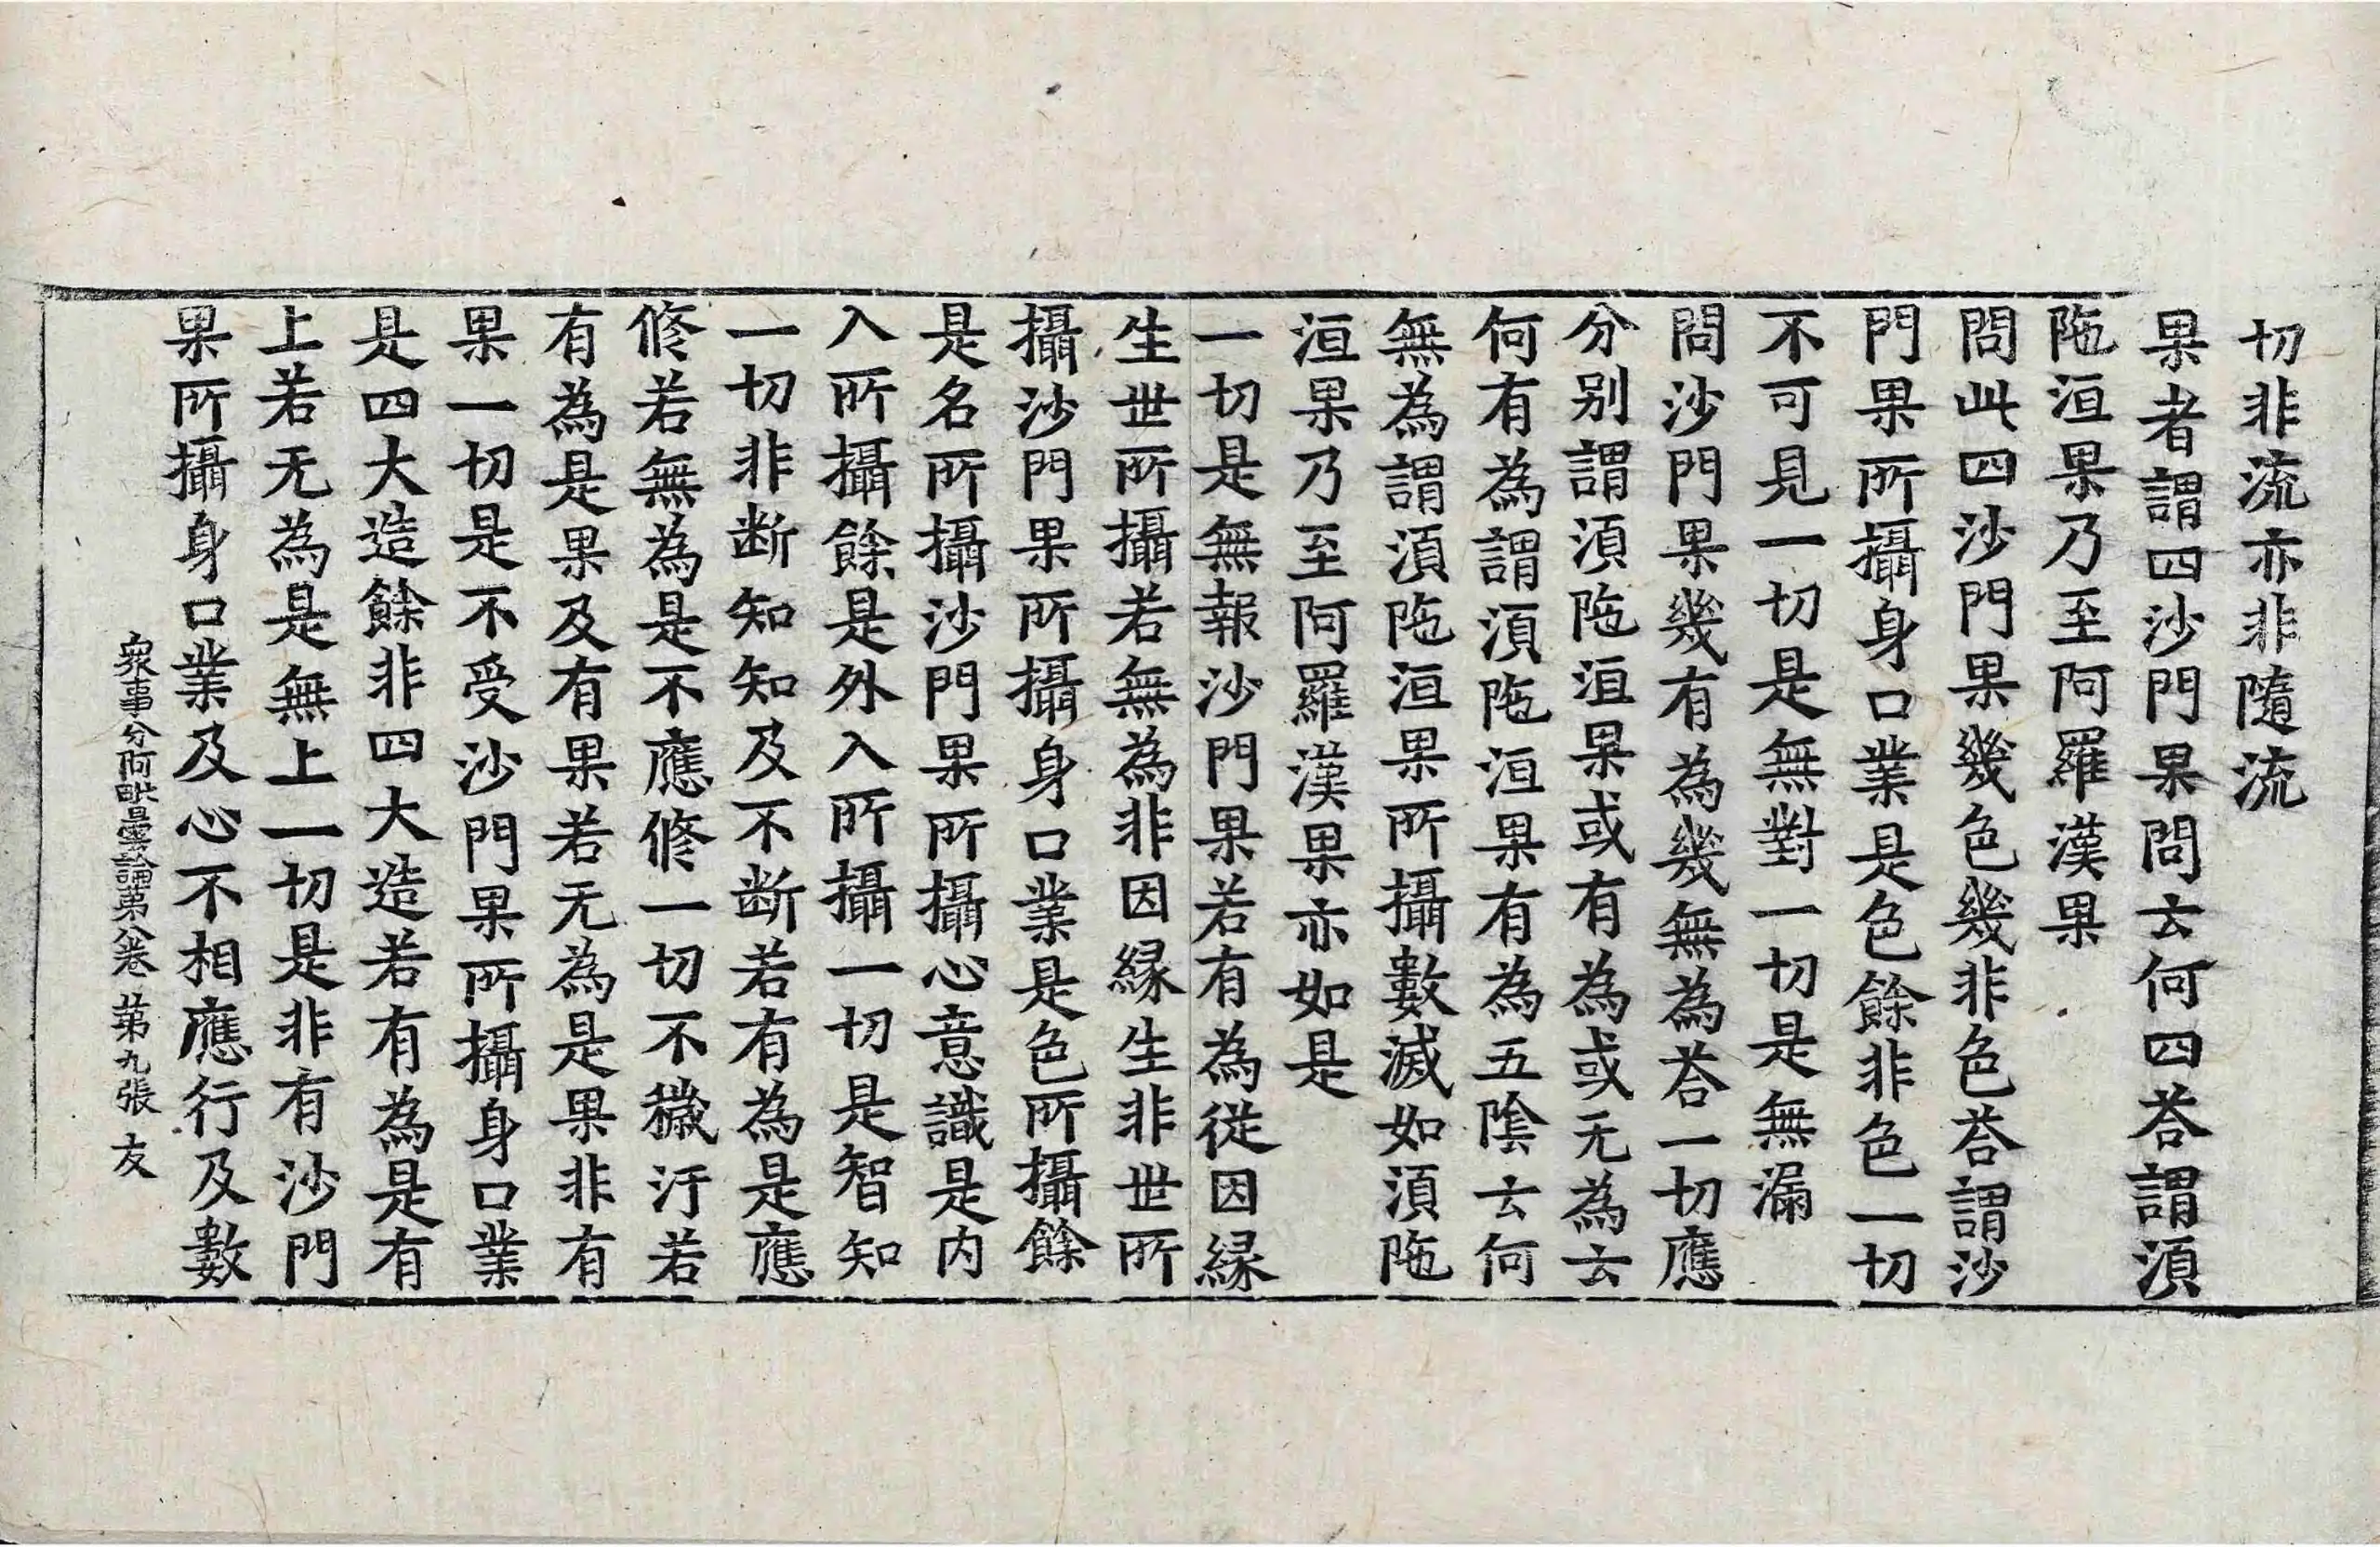 切非流亦非隨流
果者謂四沙門果問云何四荅謂湏
陁洹果乃至阿羅漢果
問此四沙門果幾色幾非色荅謂沙
門果所攝身口業是色餘非色一切
不可見一切是無對一切是無漏
問沙門果幾有為幾無為荅一切應
分别謂湏陁洹果或有為或无為云
何有為謂湏陁洹果有為五陰云何
無為謂湏陁洹果所攝數滅如湏陁
洹果乃至阿羅漢果亦如是
一切是無報沙門果若有為從因縁
生世所攝若無為非因縁生非世所
攝沙門果所攝身口業是色所攝餘
是名所攝沙門果所攝心意識是内
入所攝餘是外入所攝一切是智知
一切非断知知及不断若有為是應
修若無為是不應修一切不穢汙若
有為是果及有果若无為是果非有
果一切是不受沙門果所攝身口業
是四大造餘非四大造若有為是有
上若无為是無上一切是非有沙門
果所攝身口業及心不相應行及數
衆事分阿毗曇論第八卷 第九張 友